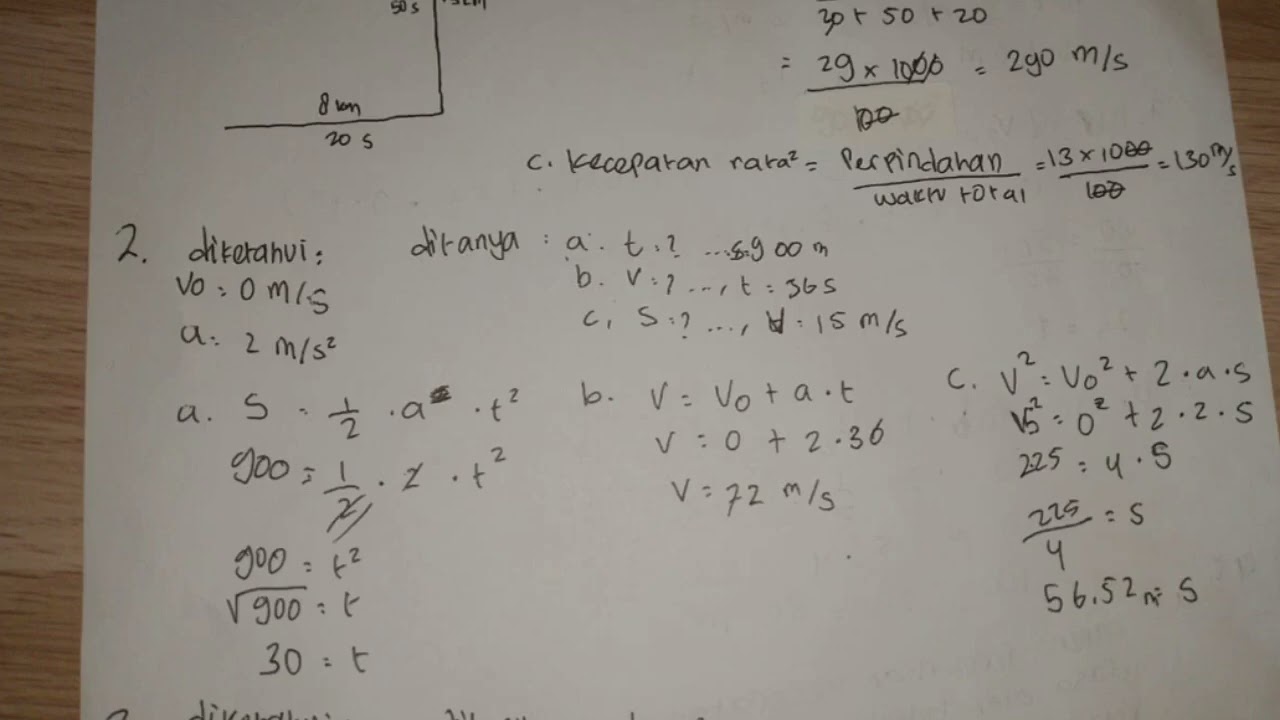 50 s
8 km
20 s
30 + 50 + 20
= 29 x 1000 = 290 m/s
100
c. Kecepatan rata² = Perpindahan = 13 x 1000 = 130 m/s
waktu total 100
2. diketahui:
Vo = 0 m/s
a = 2 m/s²
ditanya : a. t = ? ... s = 900 m
b. V = ? ..., t = 36 s
c. S = ? ..., V = 15 m/s
a. S = 1/2 . a . t²
900 = 1/2 . 2 . t²
900 = t²
√900 = t
30 = t
b. V = Vo + a . t
V = 0 + 2 . 36
V = 72 m/s
c. V² = Vo² + 2 . a . s
15² = 0² + 2 . 2 . S
225 = 4 . S
225/4 = S
56.52 m = S
diketahui: